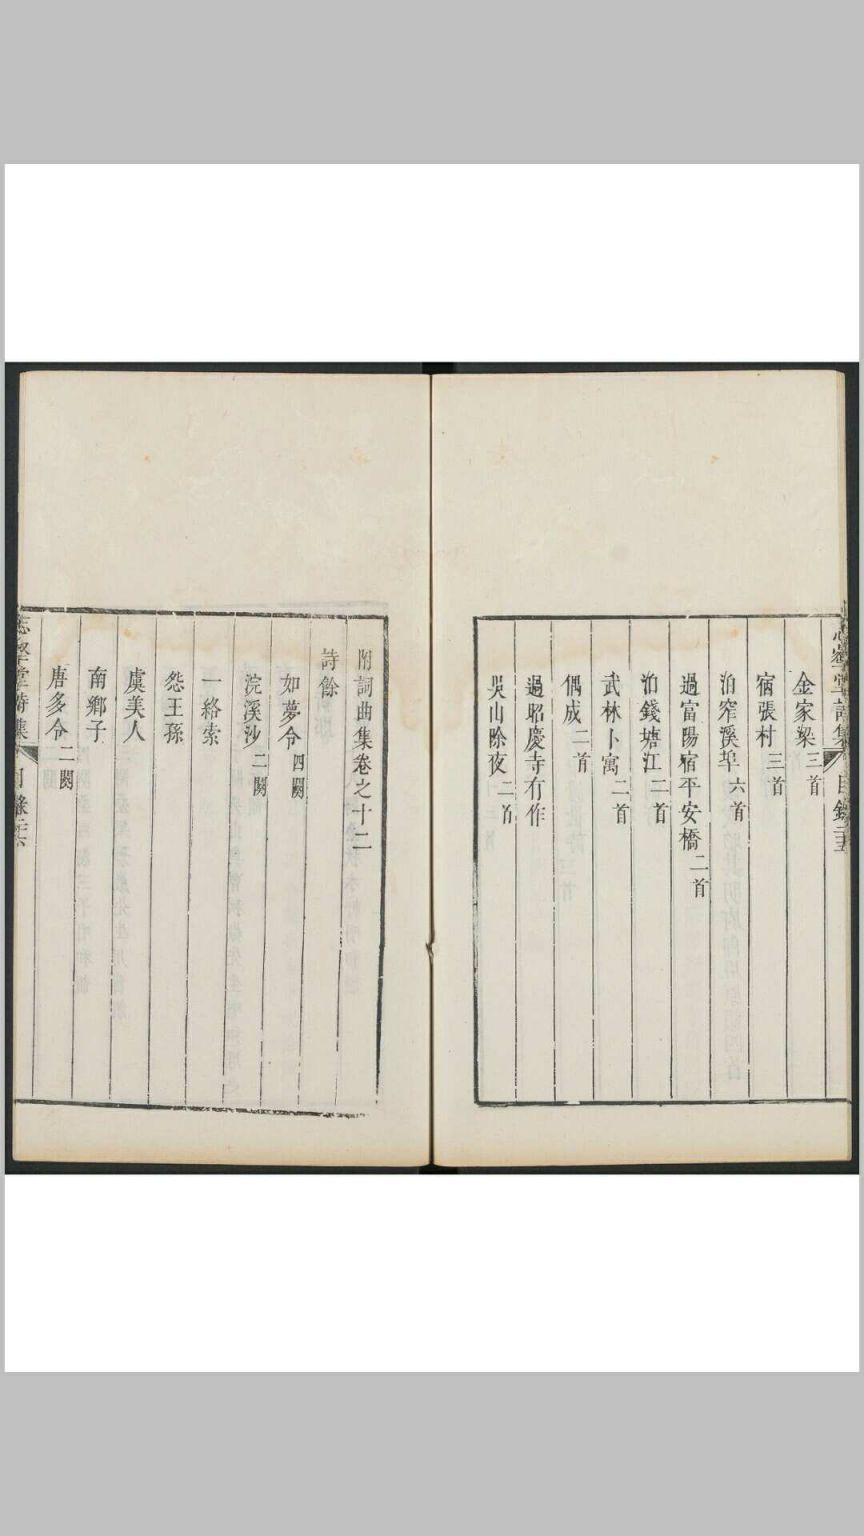 志壑堂詩集 目錄 三五
金家梁三首
宿張村三首
泊窄溪埠六首
過富陽宿平安橋二首
泊錢塘江二首
武林卜寓二首
偶成二首
過昭慶寺有作
吳山除夜二首
附詞曲集卷之十二
詩餘
如夢令四闋
浣溪沙二闋
一絡索
怨王孫
虞美人
南鄉子
唐多令二闋
志壑堂詩集 目錄